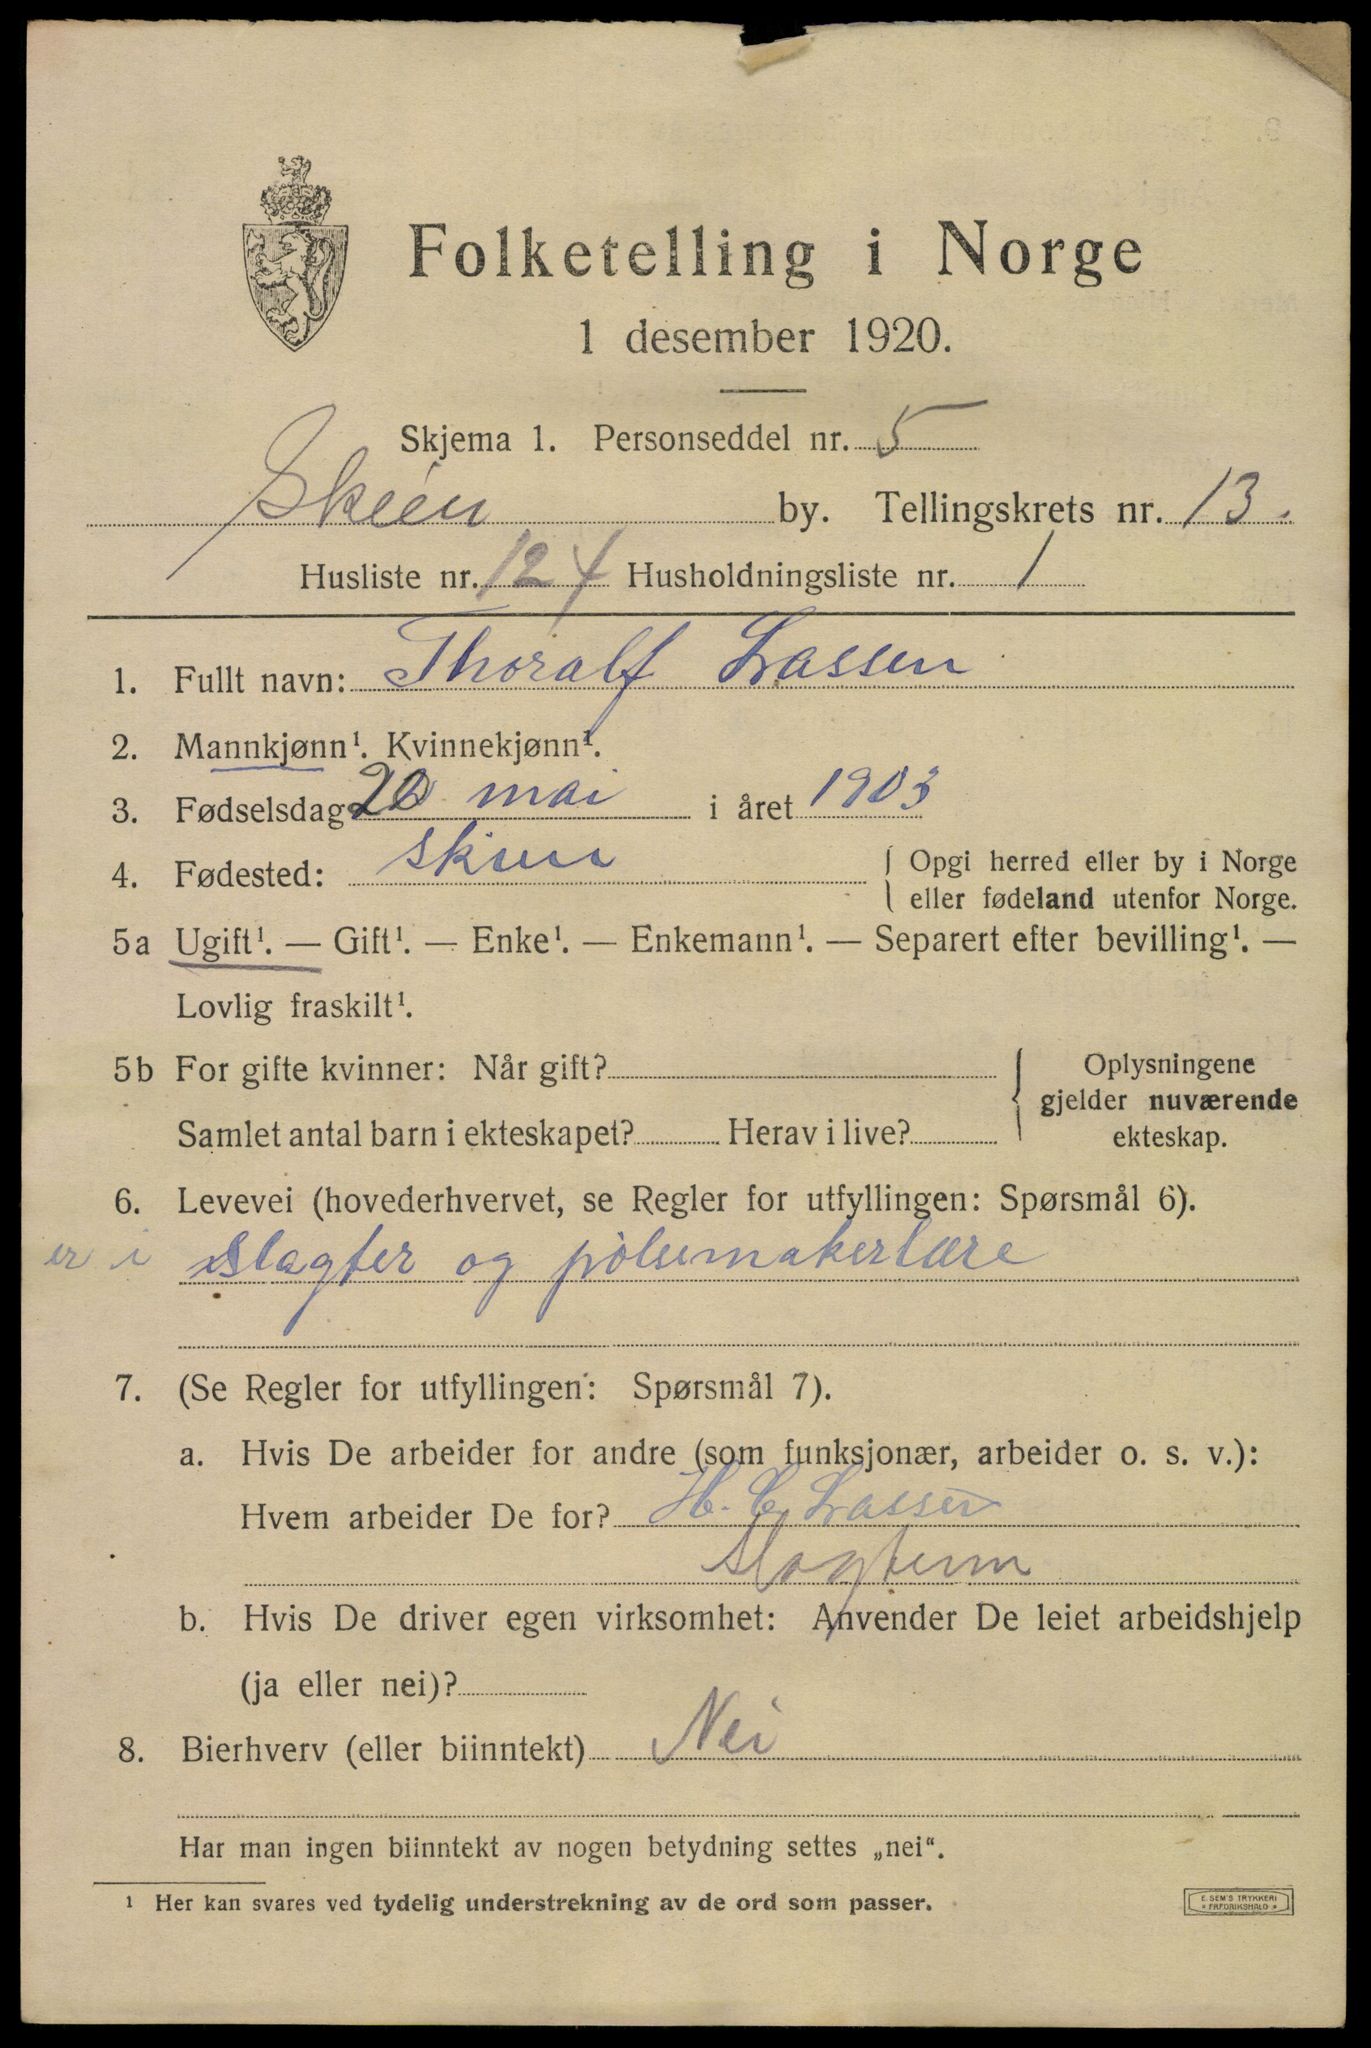 Folketelling i Norge
1 desember 1920.
Skjema 1. Personseddel nr. 5
Skien by. Tellingskrets nr. 13.
Husliste nr. 124 Husholdningsliste nr. 1
1. Fullt navn: Thoralf Lassen
2. Mannkjønn¹. Kvinnekjønn¹.
3. Fødselsdag 20 mai i året 1903
4. Fødested: Skien { Opgi herred eller by i Norge
eller fødeland utenfor Norge.
5a Ugift¹. — Gift¹. — Enke¹. — Enkemann¹. — Separert efter bevilling¹. —
Lovlig fraskilt¹.
5b For gifte kvinner: Når gift? { Oplysningene
gjelder nuværende
Samlet antal barn i ekteskapet? Herav i live? ekteskap.
6. Levevei (hovederhvervet, se Regler for utfyllingen: Spørsmål 6).
er i Slagter og pølsemakerlære
7. (Se Regler for utfyllingen: Spørsmål 7).
a. Hvis De arbeider for andre (som funksjonær, arbeider o. s. v.):
Hvem arbeider De for? H. C. Lassen
b. Hvis De driver egen virksomhet: Anvender De leiet arbeidshjelp
(ja eller nei)?
8. Bierhverv (eller biinntekt) Nei
Har man ingen biinntekt av nogen betydning settes „nei“.
¹ Her kan svares ved tydelig understrekning av de ord som passer.
E. SEM'S TRYKKERI
* FREDRIKSHALD *